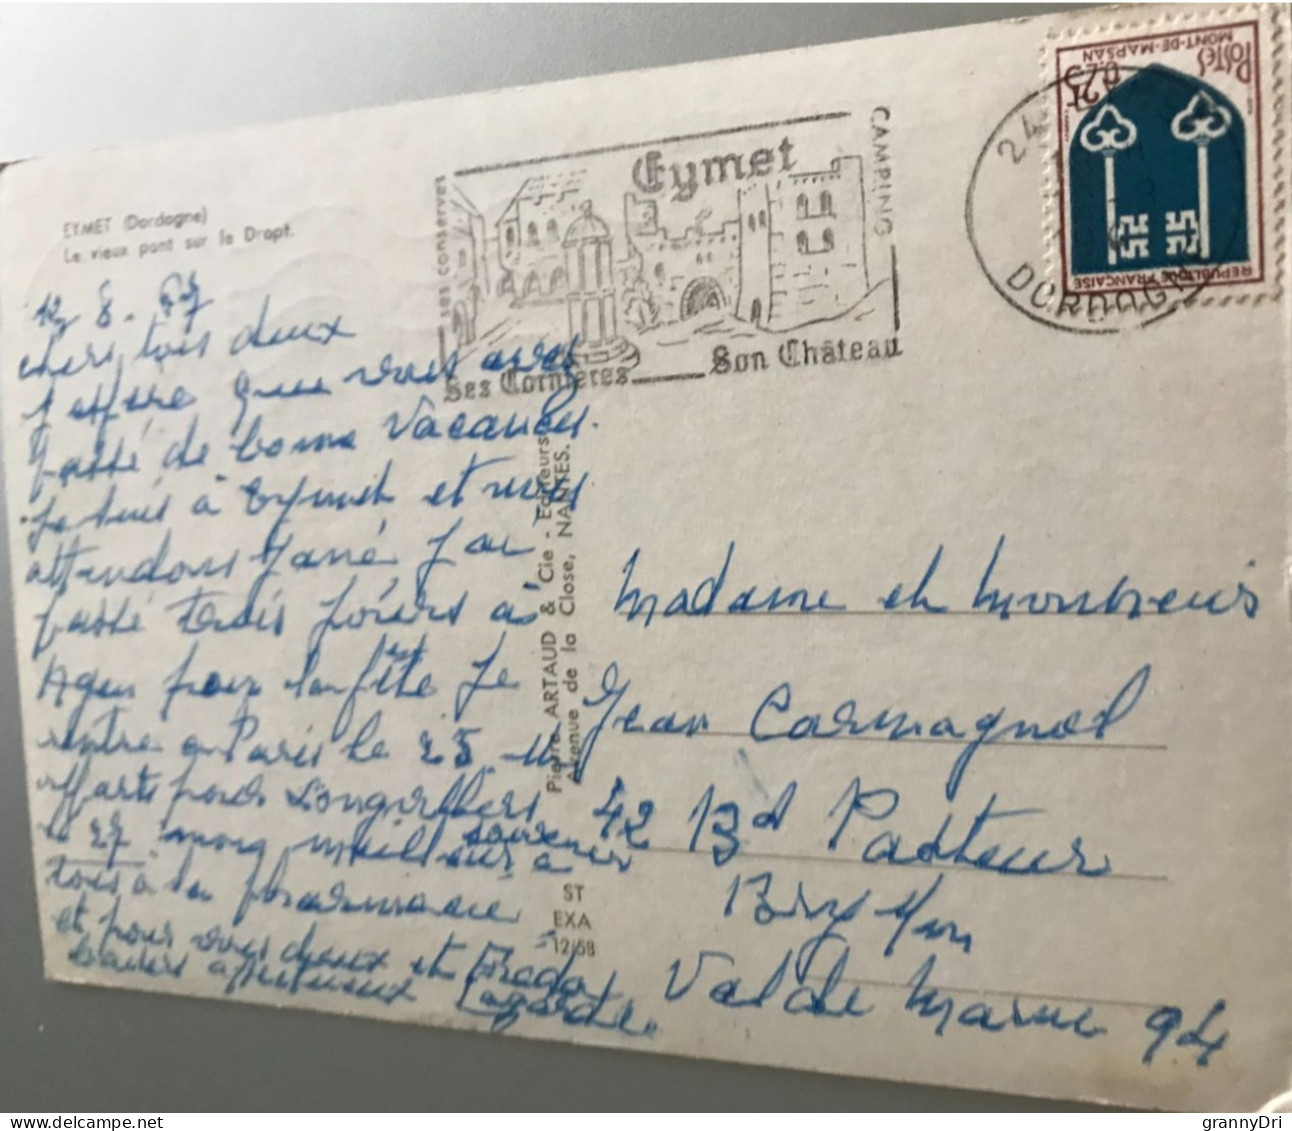 EYMET (Dordogne)
Le vieux pont sur le Dropt.
12 8. 67
chers tous deux
J espère que vous avez
passé de bonne Vacances.
Je suis à Eymet et nous
attendons J'ai
passé trois jours à
Agen pour la fête Je
rentre à Paris le 25.
pour Longvilliers
le 27 mon meilleur souvenir à
tous à la pharmacie
et pour vous deux et
baisers affectueux
Lagarde.
Eymet
CAMPING
Ses conserves
Ses Cornières
Son Château
24
DORDOGNE
POSTES
MONT-DE-MARSAN
0,25
REPUBLIQUE FRANÇAISE
Pierre ARTAUD & Cie - Editeurs
Avenue de la Close, NANTES.
ST
EXA
12/58
Madame et Monsieur
Jean Carmagnol
42 Bd Pasteur
Bry s/m
Val de Marne 94
grannyDri